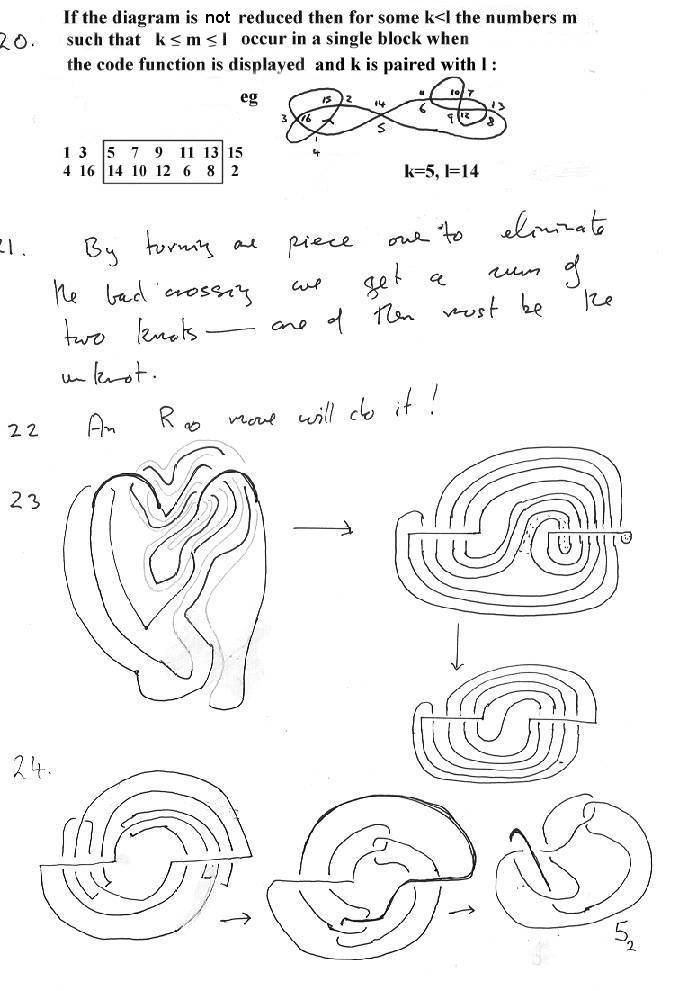 If the diagram is not reduced then for some k<l the numbers m
20. such that k ≤ m ≤ l occur in a single block when
the code function is displayed and k is paired with l :
eg
15 2 14 4 10 7 13
3 16 1 5 6 9 12 8
4
1 3 5 7 9 11 13 15
4 16 14 10 12 6 8 2
k=5, l=14
21. By turning one piece over to eliminate
the bad crossing we get a sum of
two knots — one of them must be the
unknot.
22 An R∞ move will do it!
23
24.
5₂